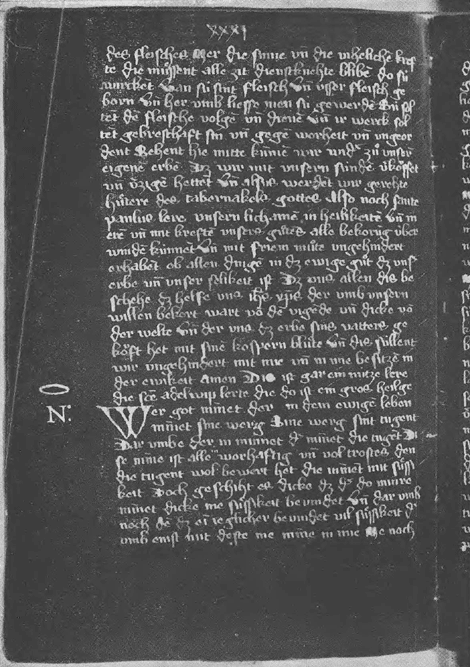 xxxj
des fleisches Aber die sinne vñ die viheliche kref
te die mu̍ssent alle zit dienstknehte bliben do su̍
wurcket wan su̍ sint fleisch vñ vsser fleisch ge
born vñ her vmb liesse men su̍ gewerdē
tet de fleische volgē vñ dienē vñ ir werck sol
tet gebresthaft sin vñ gegē worheit vñ vngeor
dent Sehent hie mitte kūmē wir vnd zů vnsern
eigenē erbe Dz wir mit vnsern sūnde
vñ hettet vñ alsus werdēt wir gerehte
hu̍tere des tabernakels gottes also noch sancte
paulus lere vnsern lichamē in heilikeitē vñ in
erē vñ mit kreften vnsers gůtes alle bekorūg u̍ber
windē ku̍nnet vñ mit friem můte vngehindert
erhabēt ob allen dinge in dz ewige gůt dz vnser
erbe vñ vnser selikeit ist Dz vns allen dis be
schehe dz helfe vns ihs xp̄s der vmb vnsern
willen bekert wart vō de vigēde vñ dicke vō
der welte vñ der vns dz erbe sins vatters ge
kōft het mit sinē kosperen blůte vñ dis su̍llent
wir vngehindert mit ime vñ in ime besitzē in
der ewikeit Amen Dis ist gar ein nůtze lere
die scē adelwip lerte die do ist ein gros heilge
N: Wer got minnet der in dem ewigē leben
minnet sine werg Sine werg sint tugent
Dar vmbe der in minnet der minnet die tugēt Di
se mīne ist alle worhaftig vñ vol trostes den
die tugent wol bewert het die minnet mit su̍ssi
keit Doch geschiht es dicke dz der do mure
minnet dicke me su̍ssikeit bevindet vñ dar vmb
noch dē dz ein ieglicher bevindet vil su̍ssikeit
vmb enist nůt deste me mine in ime Me noch